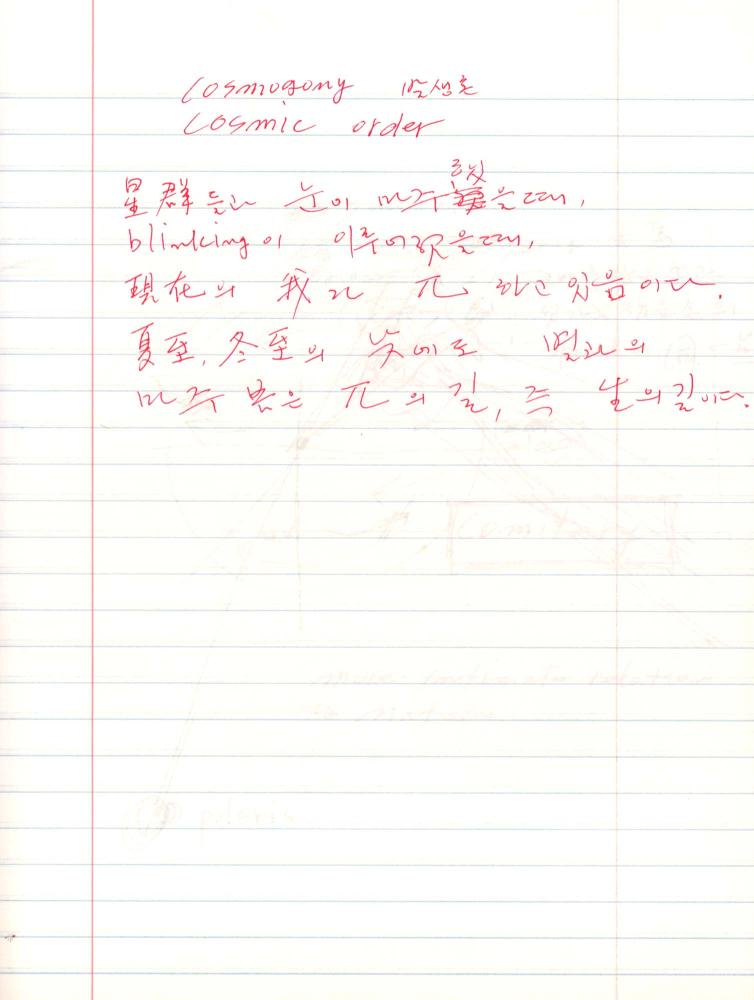 Cosmogony 발생론
Cosmic order
星群들과 눈이 마주 을때,
blinking이 이루어졌을때,
現在의 我가 π 하고 있음이다.
夏至, 冬至의 낮에도 별과의
마주 봄은 π의 길, 즉 生의길이다.
polaris